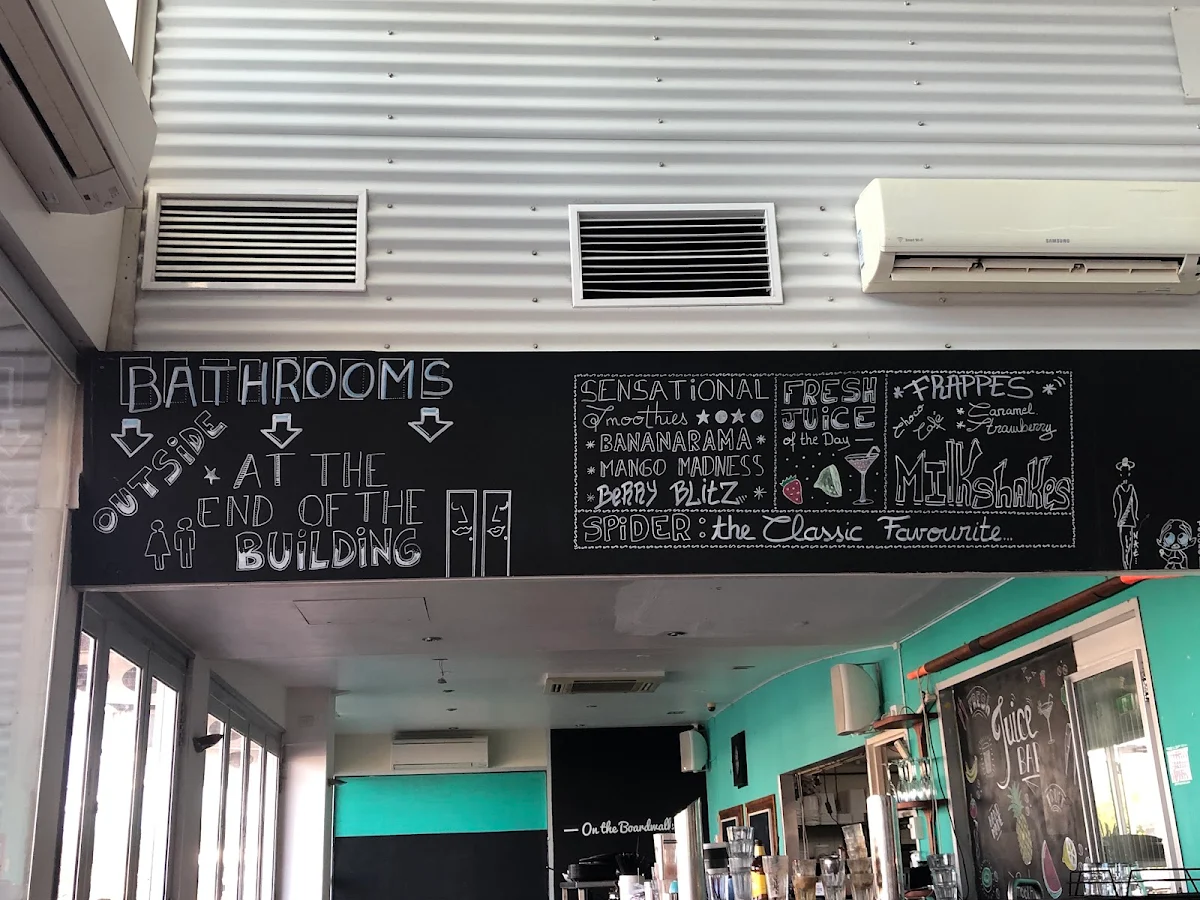 SAMSUNG
BATHROOMS
OUTSIDE
AT THE
END OF THE
BUILDING
SENSATIONAL
Smoothies
BANANARAMA
MANGO MADNESS
BERRY BLITZ
FRESH
JUICE
of the Day
FRAPPES
Choco Caramel
Café Strawberry
Milkshakes
SPIDER: the Classic Favourite...
On the Boardwalk
Juice
BAR